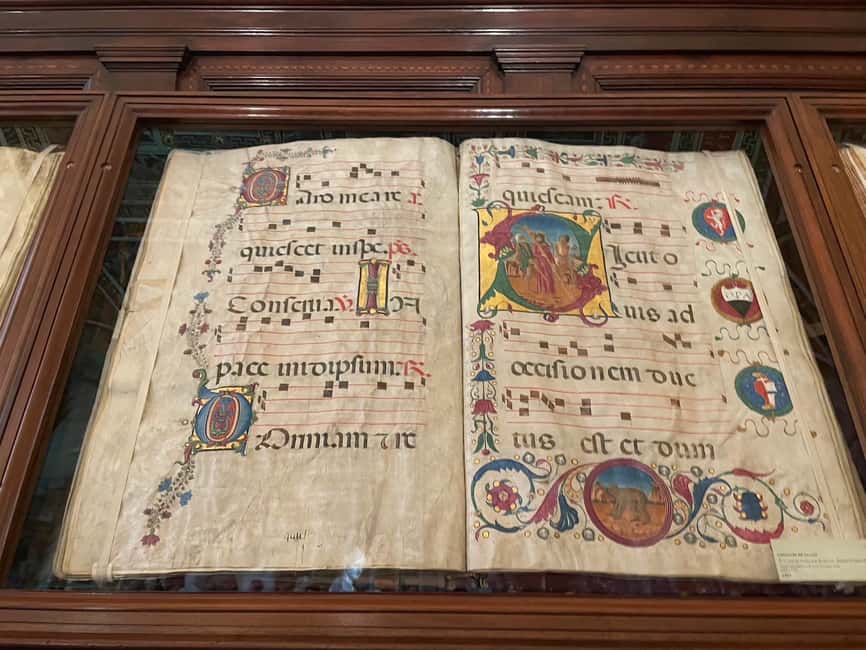 Caro mea re
quiescet in spe. ps.
Conserua. V. IN
pace in idipsum. R.
DOrmiam ⁊ re
quiescam: R.
SIcut o
uis ad
occisionem duc
tus est et dum